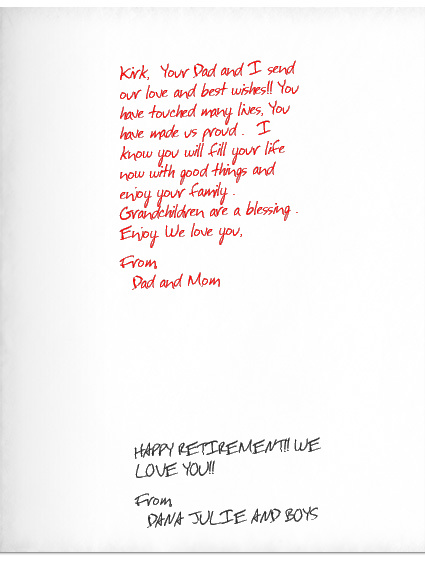 Kirk, Your Dad and I send
our love and best wishes!! You
have touched many lives, You
have made us proud. I
know you will fill your life
now with good things and
enjoy your family.
Grandchildren are a blessing.
Enjoy We love you,
From
Dad and Mom
HAPPY RETIREMENT!! WE
LOVE YOU!!
From
DANA JULIE AND BOYS